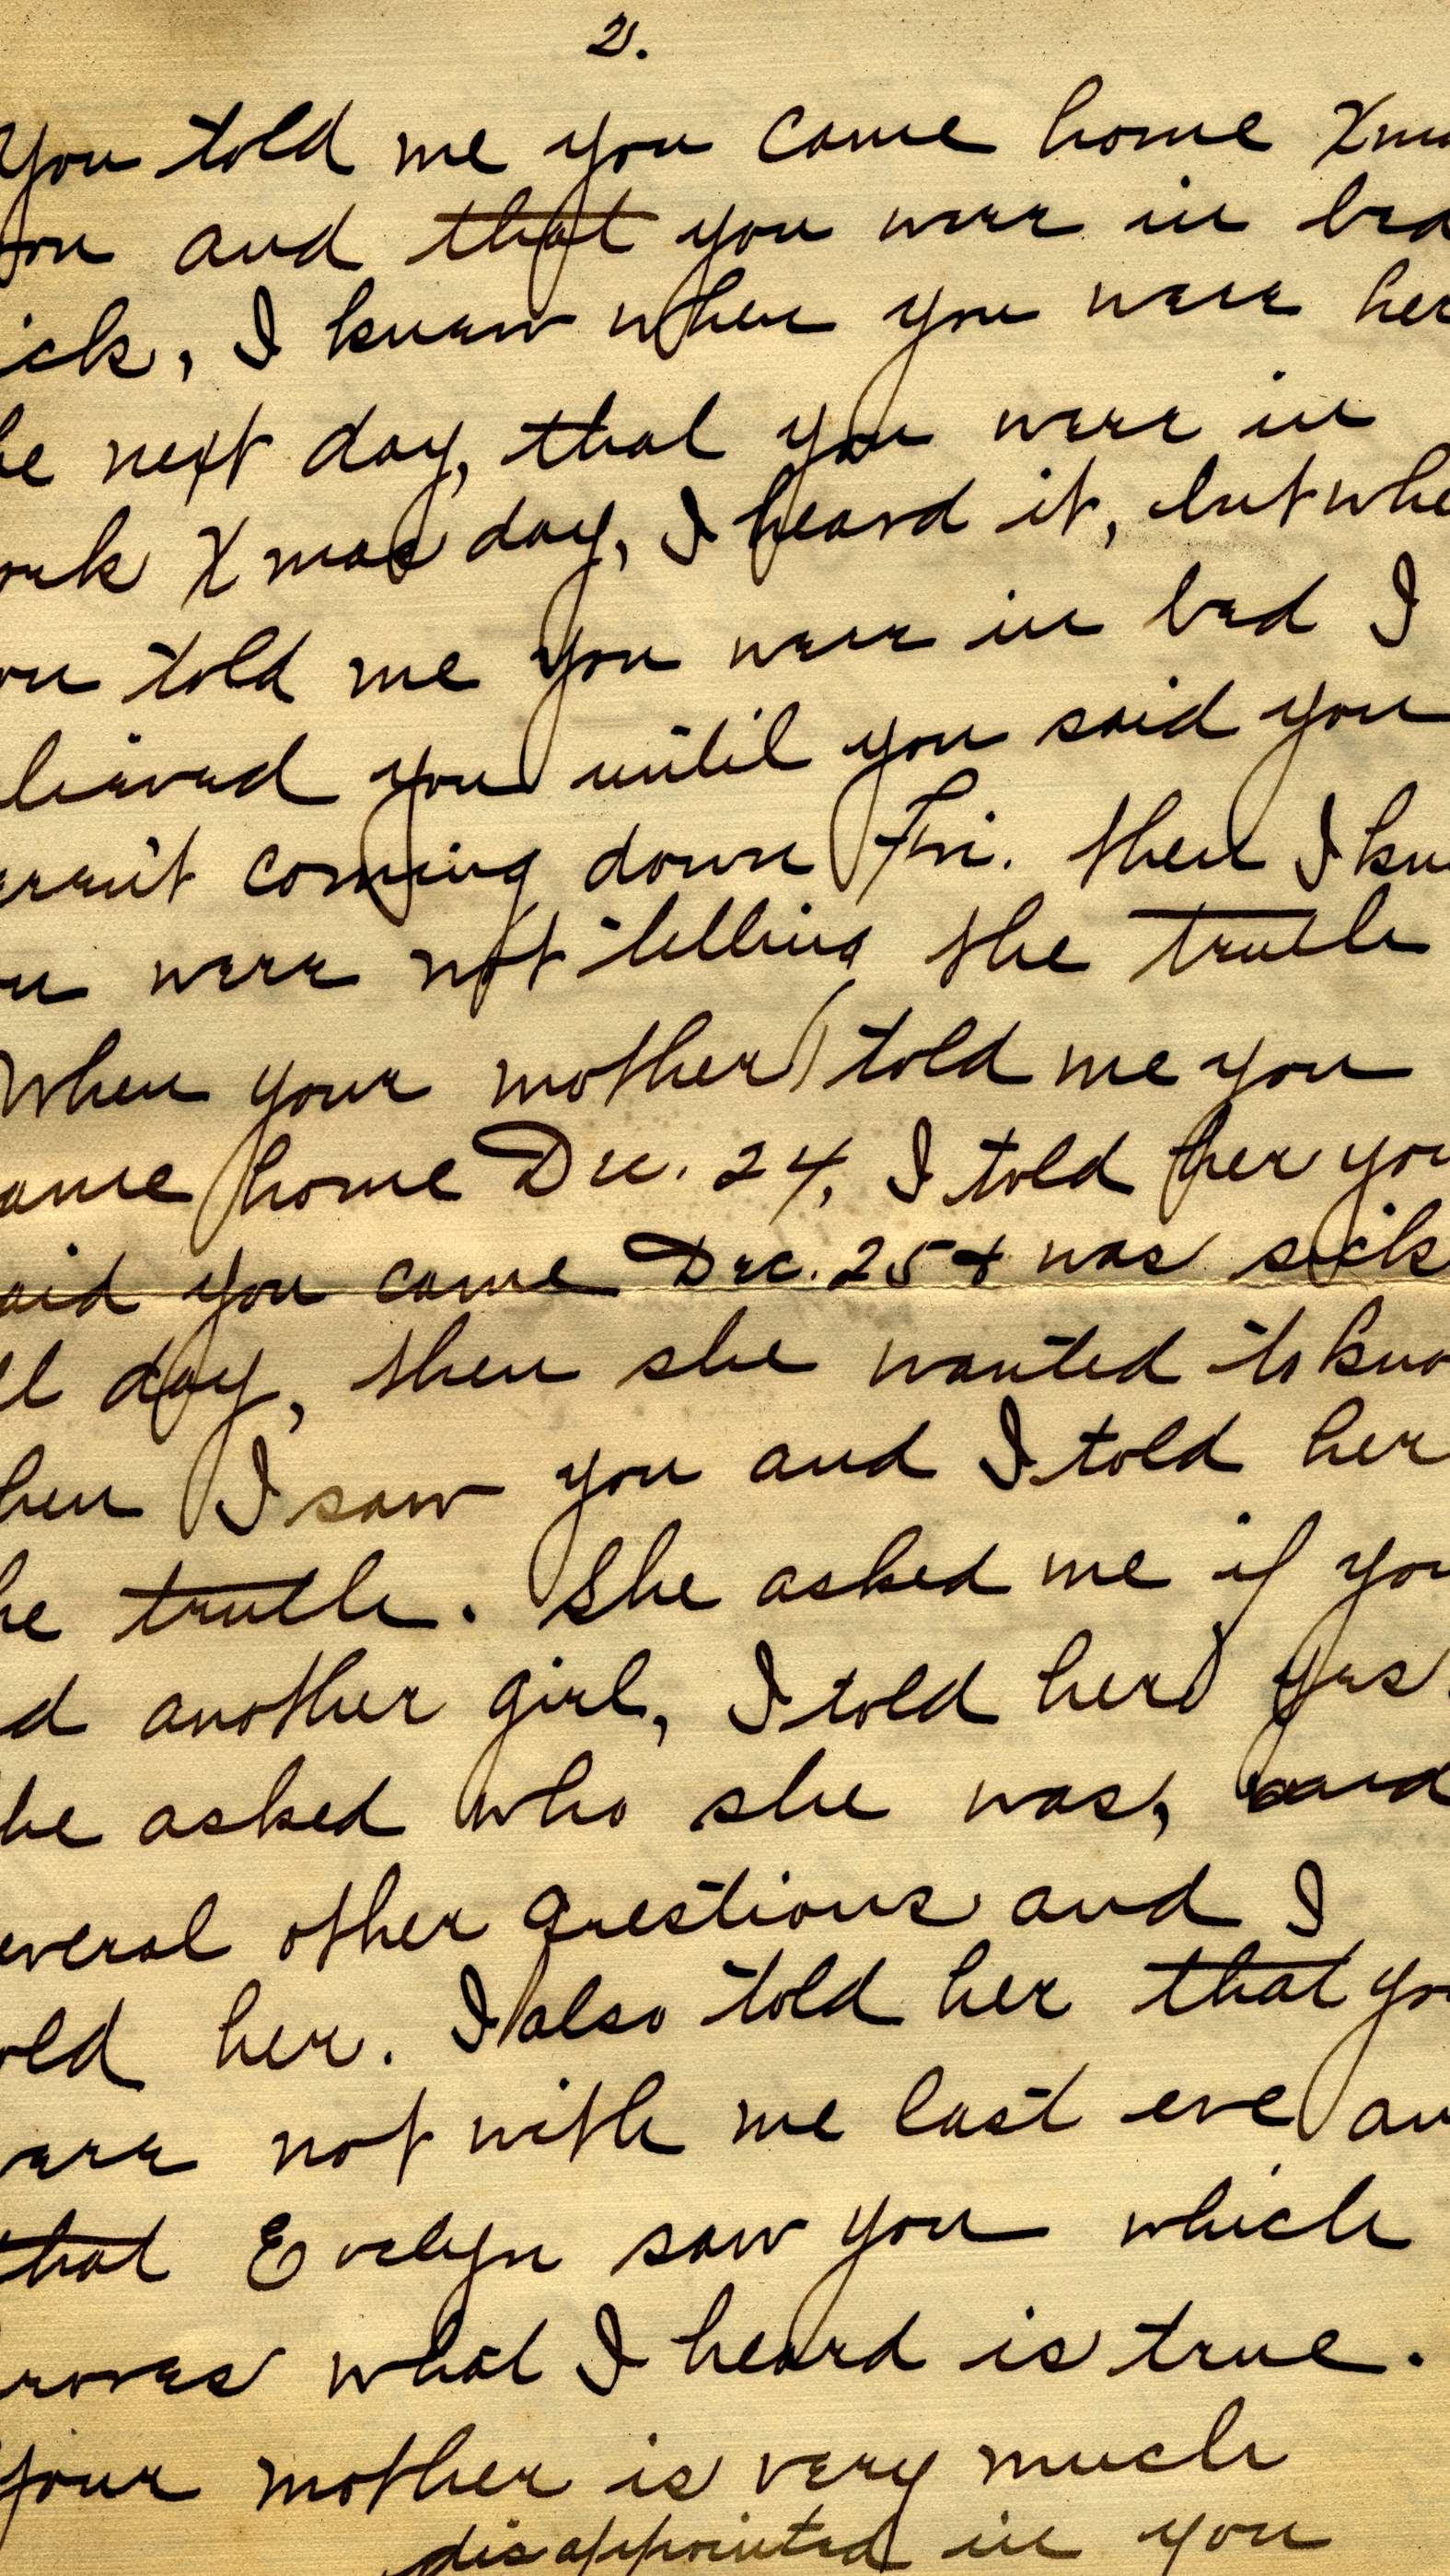 2.
You told me you came home Xma
on and that you were in bed
ick, I knew when you were her
he next day, that you were in
ork Xmas day, I heard it, but whe
ou told me you were in bed I
lieved you until you said you
erent coming down Fri. then I kne
ou were not telling the truth
When your mother told me you
ame home Dec. 24, I told her you
aid you came Dec. 25 & was sick
ll day, then she wanted to kno
hen I saw you and I told her
he truth. She asked me if you
d another girl, I told her yes.
he asked who she was, and
everal other questions and I
old her. I also told her that yo
were not with me last eve an
that Evelyn saw you which
roves what I heard is true.
Your mother is very much
disappointed in you